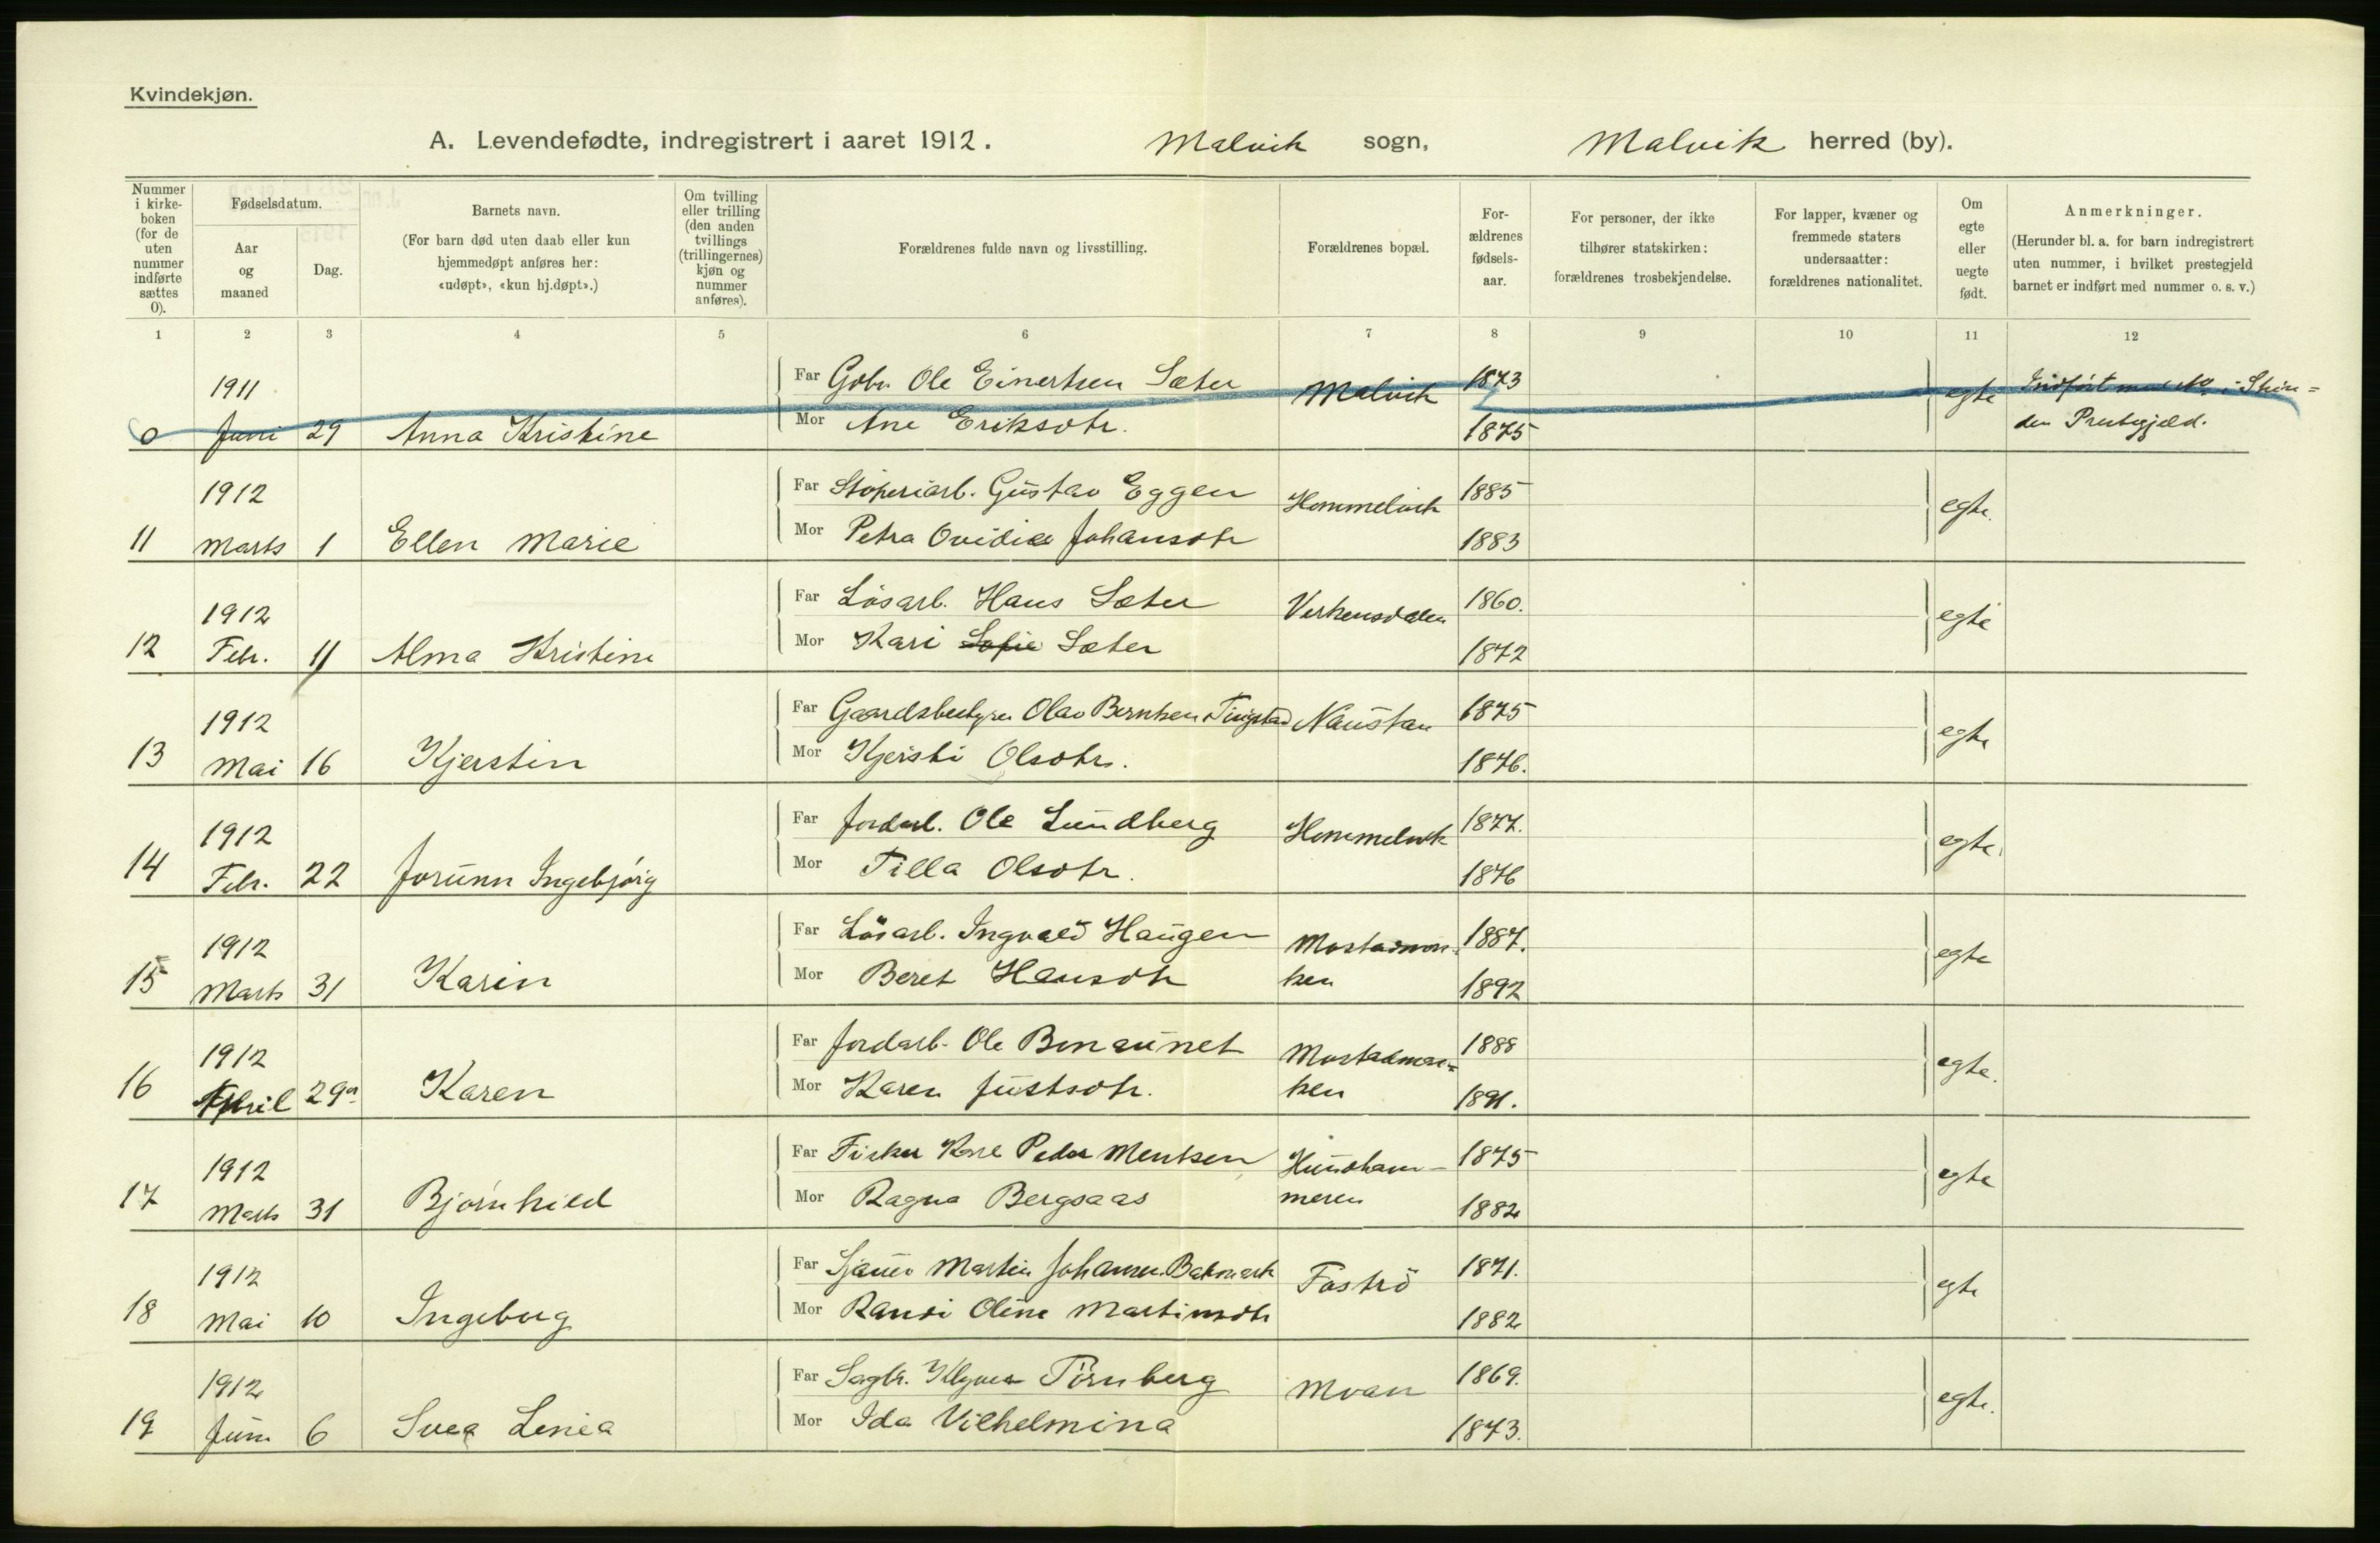 Kvindekjøn.
A. Levendefødte, indregistrert i aaret 1912. Malvik sogn, Malvik herred (by).
Nummer i kirke-boken (for de uten nummer indførte sættes 0).
Fødselsdatum.
Aar og maaned
Dag.
Barnets navn.
(For barn død uten daab eller kun hjemmedøpt anføres her: «udøpt», «kun hj.døpt».)
Om tvilling eller trilling (den anden tvillings (trillingernes) kjøn og nummer anføres).
Forældrenes fulde navn og livsstilling.
Forældrenes bopæl.
For-ældrenes fødsels-aar.
For personer, der ikke tilhører statskirken: forældrenes trosbekjendelse.
For lapper, kvæner og fremmede staters undersaatter: forældrenes nationalitet.
Om egte eller uegte født.
Anmerkninger.
(Herunder bl. a. for barn indregistrert uten nummer, i hvilket prestegjeld barnet er indført med nummer o. s. v.)
1 2 3 4 5 6 7 8 9 10 11 12
1911 Far Gbr. Ole Einertsen Sæter Malvik 1873 egte Indført med No. i Skin=
0 Juni 29 Anna Kristine Mor Ane Eriksdtr. 1875 den Prestegjeld.
1912 Far Støperiarb. Gustav Eggen Hommelvik 1885 egte.
11 Marts 1 Ellen Marie Mor Petra Ovidie Johansdtr 1883
1912 Far Løsarb. Hans Sæter Verkensdalen 1860. egte
12 Febr. 11 Alma Kristine Mor Kari Sofie Sæter 1872
1912 Far Gaardsbestyrer Olav Berntsen Tingstad Naustan 1875 egte
13 Mai 16 Kjerstin Mor Kjersti Olsdtr. 1876.
1912 Far Jordarb. Ole Lundberg Hommelvik 1877. egte.
14 Febr. 22 Jorunn Ingebjørg Mor Tilla Olsdtr. 1876
1912 Far Løsarb. Ingvald Haugen Mostadmar- 1887. egte
15 Marts 31 Karin Mor Beret Hansdtr ken 1892
1912 Far Jordarb. Ole Bonaunet Mostadmar= 1888 egte.
16 April 29 Karen Mor Karen Justsdtr. ken 1891.
1912 Far Fisker Kare Peder Mentsen Hundham- 1875 egte
17 Marts 31 Bjørnhild Mor Ragna Bergsaas meren 1882
1912 Far Sjauer Martin Johansen Bakmark Fostrø 1871. egte
18 Mai 10 Ingeborg Mor Randi Oline Martinsdtr 1882
1912 Far Sagb. Törnberg Moan 1869. egte.
19 Juni 6 Svea Linea Mor Ida Vilhelmina 1873.